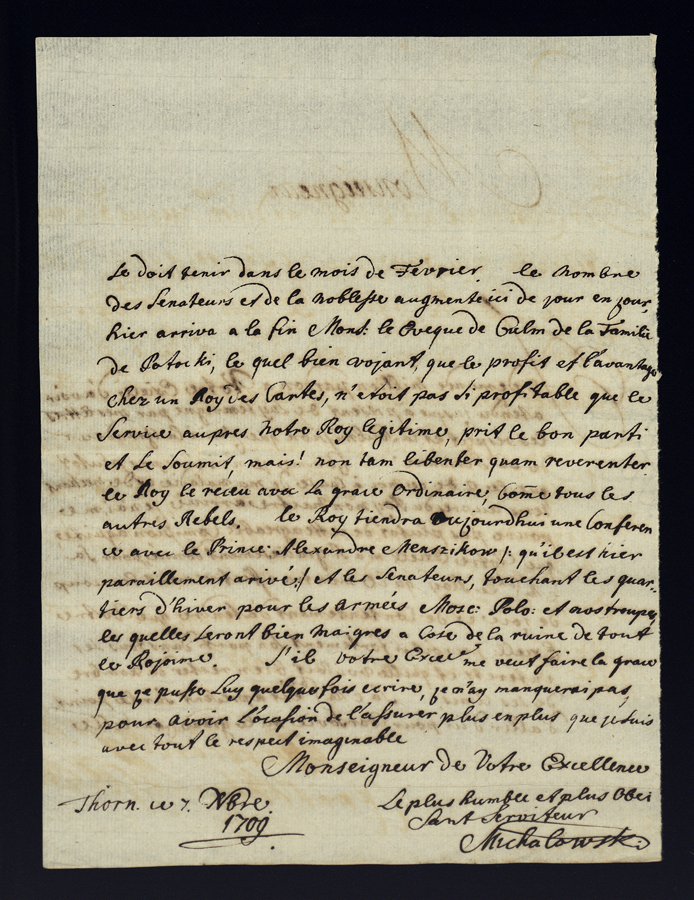 Se doit tenir dans le mois de Fevrier. le nombre
des Senateurs et de la noblesse augmente ici de jour en jour,
hier arriva a la fin Mons: le Eveque de Culm de la Familie
de Potocki, le quel bien vojant, que le profit et l'avantage
chez un Roy des Cartes, n'etoit pas si profitable que le
Service aupres notre Roy legitime, prit le bon parti
et se soumit, mais! non tam libenter quam reverenter.
le Roy le receu avec la grace ordinaire, come tous les
autres Rebels. le Roy tiendra aujourdhui une Conferen
ce avec le Prince Alexandre Menszikow /: qu'il est hier
paraillement arivé :/ et les Senateurs, touchant les quar-
tiers d'hiver pour les armées Mosc: Polo: et nos troupes,
les quelles seront bien maigres a cose de la ruine de tout
le Rojome. S'il votre Excel: me veut faire la grace
que je pusse Luy quelque fois ecrire, je n'ay manquerai pas,
pour avoir l'ocasion de l'assurer plus en plus que je suis
avec tout le respect imaginable
Monseigneur de Votre Excellence
Thorn. ce 7. Nbre.
1709
Le plus humble et plus Obei
Sant Serviteur
Michalowski
Monseigneur